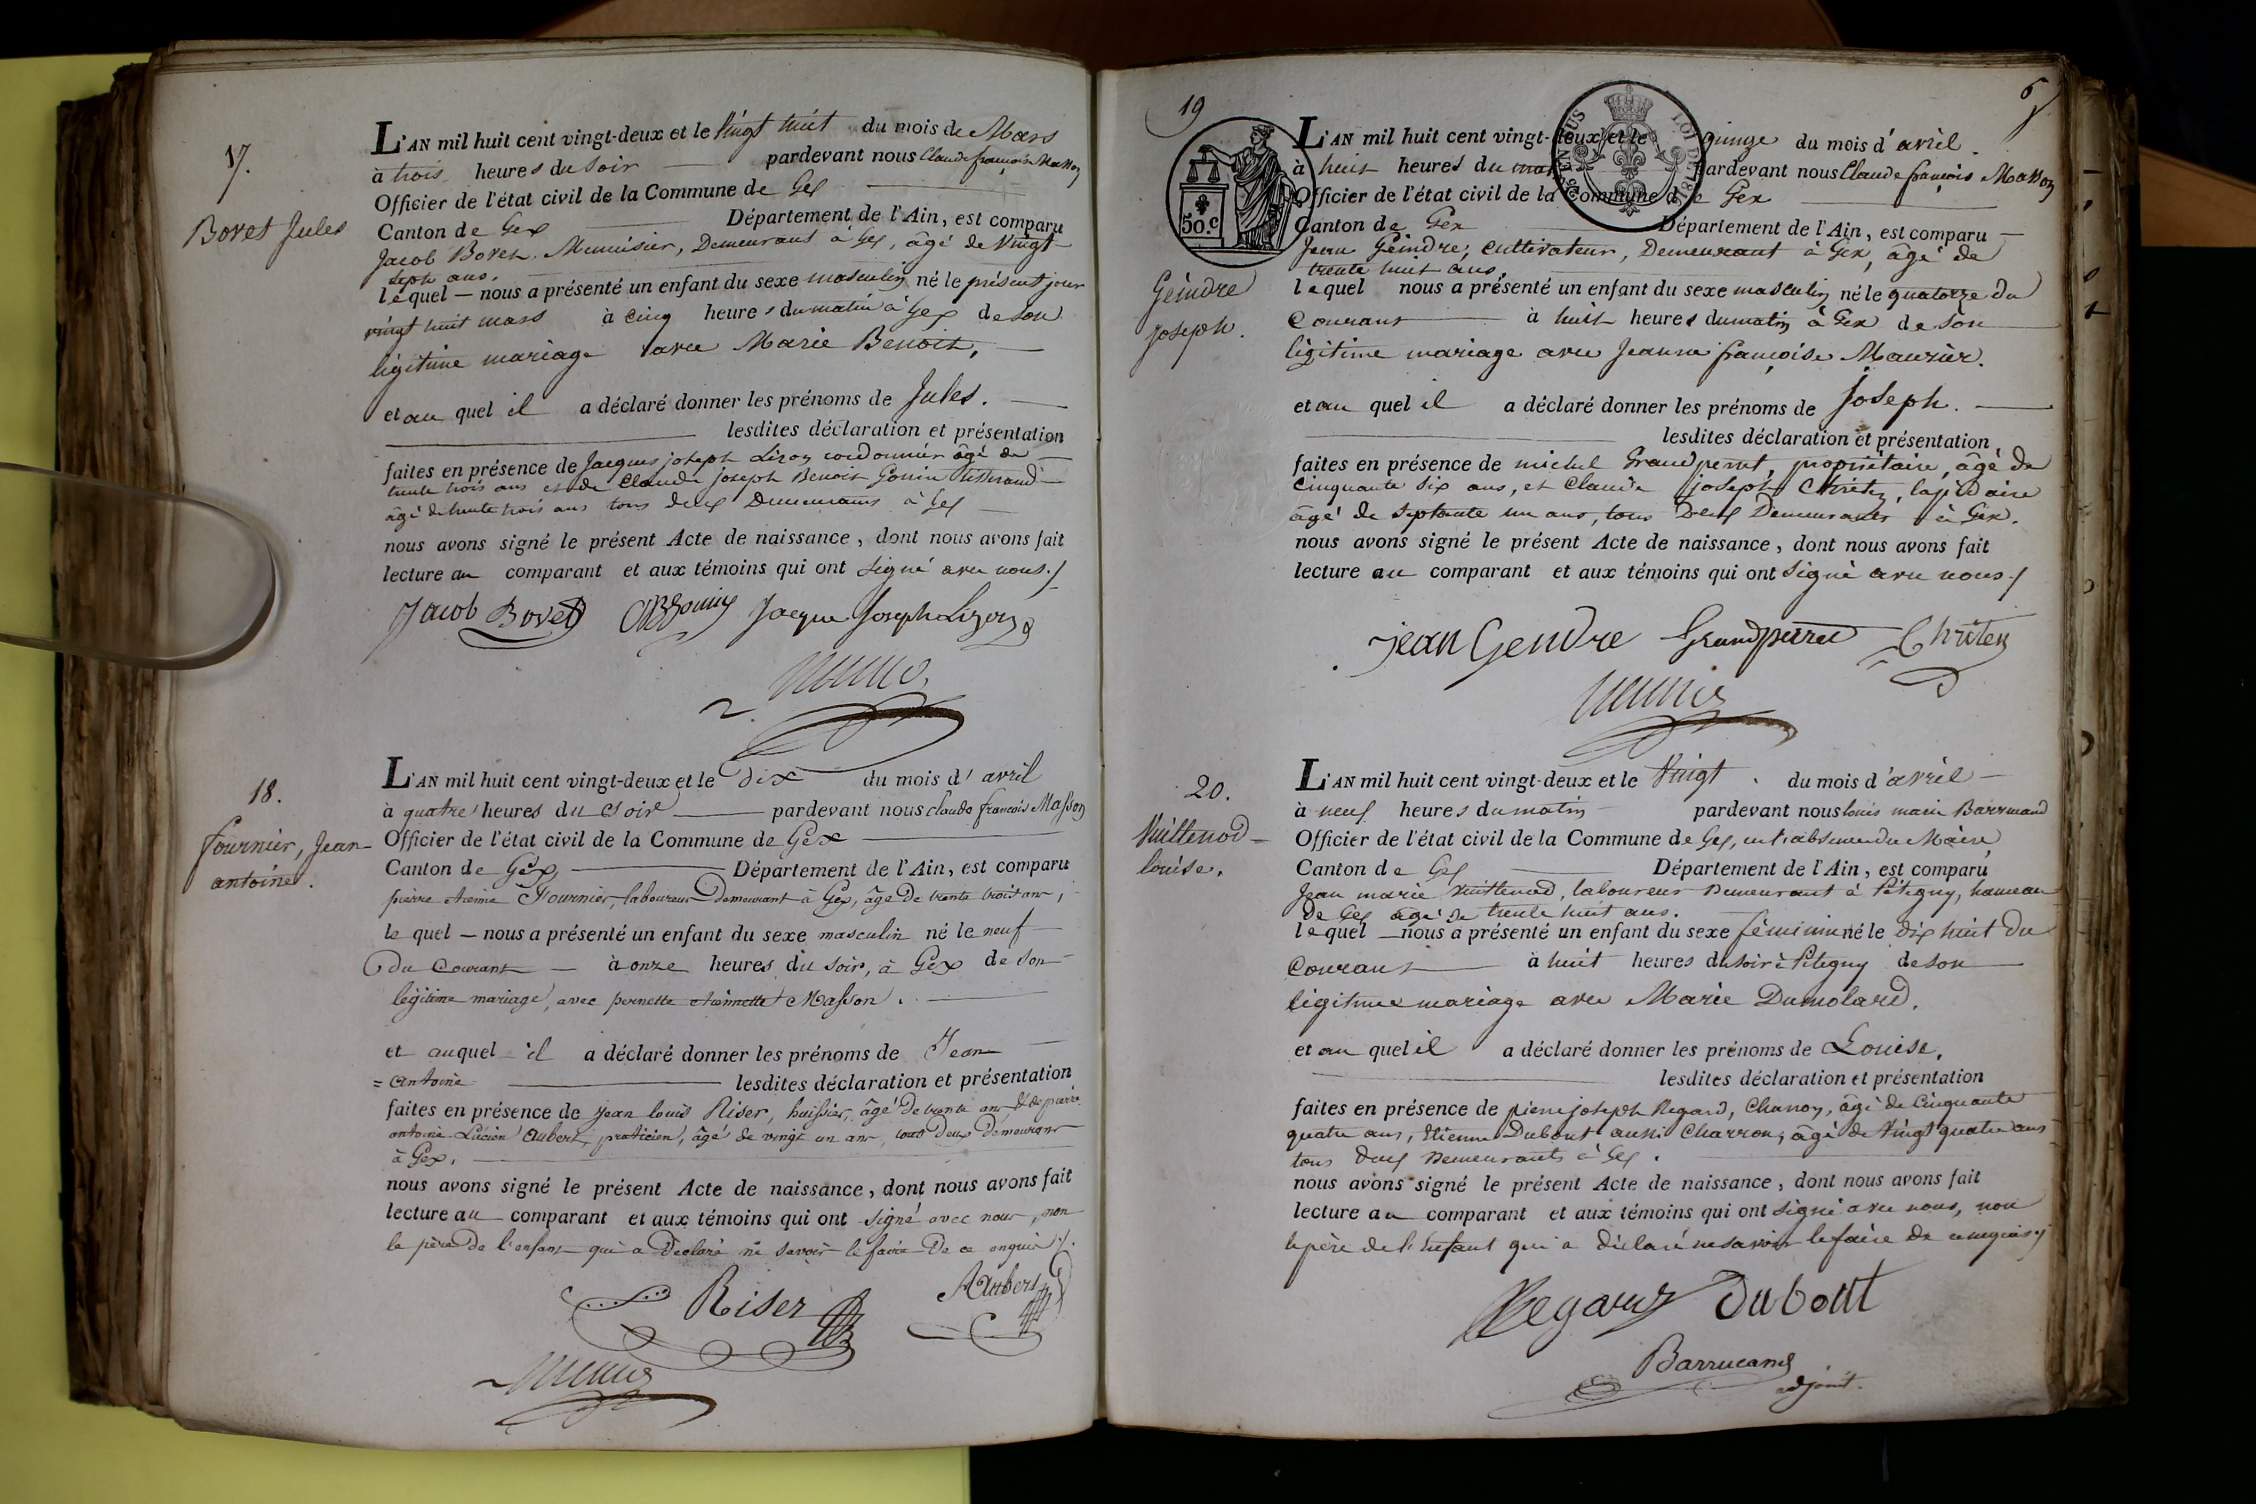 17.
Bovet Jules
L'AN mil huit cent vingt-deux et le vingt huit du mois de Mars
à trois heures du soir pardevant nous Claude françois Masson
Officier de l'état civil de la Commune de Gex
Canton de Gex Département de l'Ain, est comparu
Jacob Bovet Menuisier, Demeurant à Gex, âgé de vingt
sept ans.
lequel — nous a présenté un enfant du sexe masculin né le présent jour
vingt huit mars à cinq heures du matin à Gex de son
légitime mariage avec Marie Benoit,
et au quel il a déclaré donner les prénoms de Jules.
lesdites déclaration et présentation
faites en présence de Jacques joseph Lizon cordonnier âgé de
trente trois ans et de Claude joseph Benoit Gonin tisserand
âgé de trente trois ans tous deux Demeurants à Gex
nous avons signé le présent Acte de naissance, dont nous avons fait
lecture au comparant et aux témoins qui ont signé avec nous./
Jacob Bovet Jacque Joseph Lizon
18.
fournier, Jean
antoine.
L'AN mil huit cent vingt-deux et le dix du mois d'avril
à quatre heures du soir pardevant nous claude francois Masson
Officier de l'état civil de la Commune de Gex
Canton de Gex, Département de l'Ain, est comparu
pierre etienne Fournier, laboureur Demeurant à Gex, âgé De trente trois ans,
le quel — nous a présenté un enfant du sexe masculin né le neuf
du Courant — à onze heures du soir, à Gex de son
légitime mariage, avec pernette etiennette Masson.
et auquel il a déclaré donner les prénoms de Jean
= antoine lesdites déclaration et présentation
faites en présence de jean louis Riser, huissier, âgé de trente ans, & de pierre
antoine Lucien Aubert, praticien, âgé de vingt un ans, tous deux Demeurans
à Gex.
nous avons signé le présent Acte de naissance, dont nous avons fait
lecture au comparant et aux témoins qui ont signé avec nous, non
le père de l'enfant qui a Déclaré ne savoir le faire De ce enquis./.
Riser Aubert
6
19
50 c
LOI DE 1816
Geindre
joseph.
L'AN mil huit cent vingt-deux et le quinze du mois d'avril
à huit heures du matin pardevant nous Claude françois Masson
Officier de l'état civil de la Commune de Gex
Canton de Gex Département de l'Ain, est comparu
Jean Geindre, cultivateur, Demeurant à Gex, âgé de
trente huit ans,
lequel nous a présenté un enfant du sexe masculin né le quatorze du
Courant à huit heures du matin à Gex de son
légitime mariage avec Jeanne françoise Maurier.
et au quel il a déclaré donner les prénoms de Joseph.
lesdites déclaration et présentation
faites en présence de michel Grandperret, propriétaire, âgé de
cinquante six ans, et Claude joseph Chriten, lapidaire
âgé de septante un ans, tous Deux Demeurants à Gex.
nous avons signé le présent Acte de naissance, dont nous avons fait
lecture au comparant et aux témoins qui ont signé avec nous./
jean Gendre Grandperret Chriten
20.
Vuillenod
louise.
L'AN mil huit cent vingt-deux et le Vingt du mois d'avril
à neuf heures du matin pardevant nous louis marie Barrucand
Officier de l'état civil de la Commune de Gex, en l'absence du Maire
Canton de Gex Département de l'Ain, est comparu
Jean marie Vuillenod, laboureur Demeurant à Pétigny, hameau
De Gex âgé de trente huit ans.
lequel nous a présenté un enfant du sexe féminin né le dix huit du
Courant à huit heures du soir à Pitegny de son
légitime mariage avec Marie Dumolard.
et au quel il a déclaré donner les prénoms de Louise.
lesdites déclaration et présentation
faites en présence de pierre joseph Regard, Charron, âgé de Cinquante
quatre ans, Etienne Dubout aussi Charron, âgé de vingt quatre ans
tous deux Demeurants à Gex.
nous avons signé le présent Acte de naissance, dont nous avons fait
lecture au comparant et aux témoins qui ont signé avec nous, non
le père de l'Enfant qui a déclaré ne savoir le faire de ce enquis./
Regard Dubout
Barrucand
adjoint.